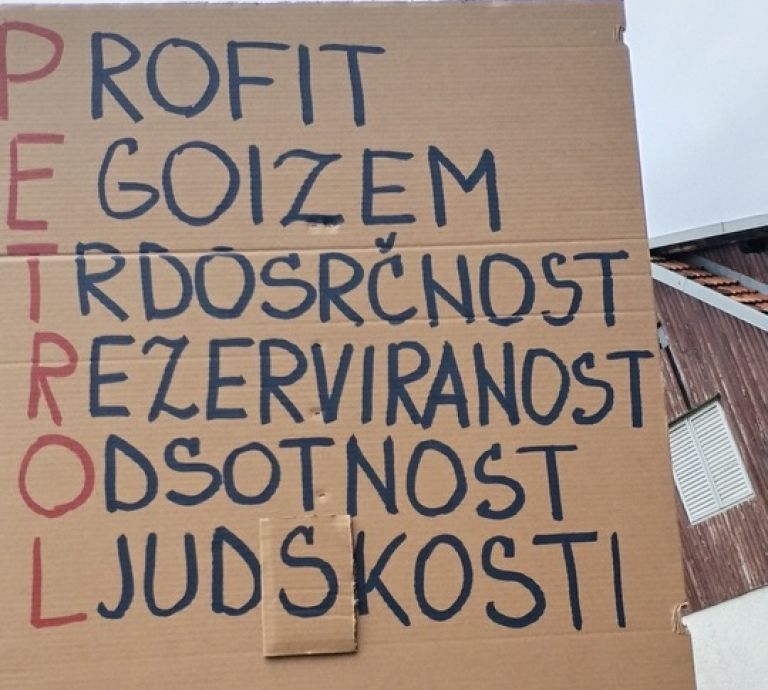 PROFIT
EGOIZEM
TRDOSRČNOST
REZERVIRANOST
ODSOTNOST
LJUDSKOSTI